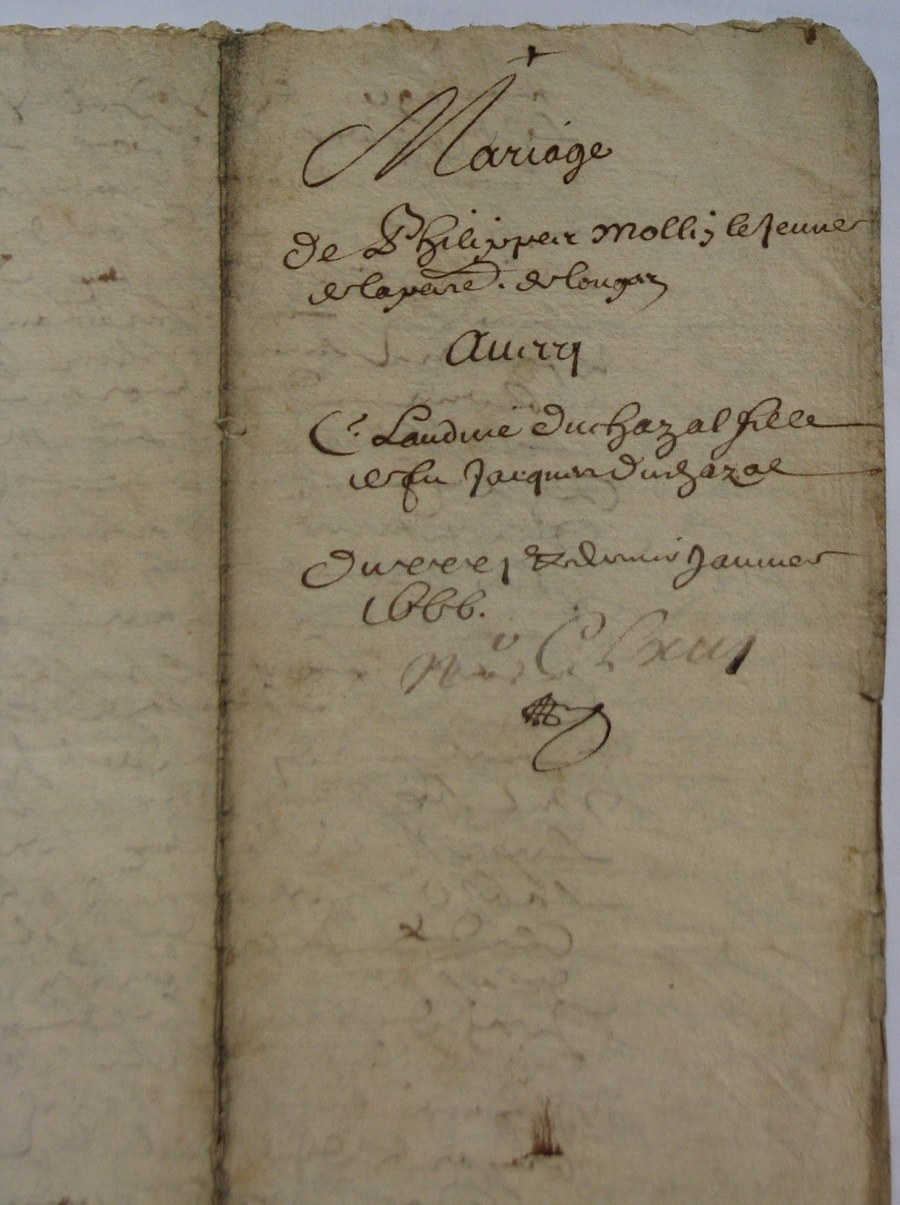 Mariage
de Philippes Mollis le Jeune
de la paroisse de longes
Avecq
Claudine duchazal fille
de fu Jacques duchazal
Du xxxj & dernier Janvier
1666.